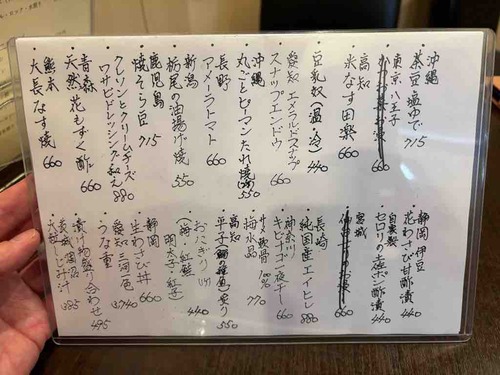 沖縄
茶豆塩ゆで 715
東京・八王子
高知
水なす田楽 660
豆乳奴(温・冷) 440
愛知 エメラルドスナップ
スナップエンドウ 660
沖縄
丸ごとピーマンたれ焼 550
長野
アメーラトマト 660
新潟
栃尾の油揚げ焼 550
鹿児島
焼そら豆 715
クレソンとクリームチーズ
ワサビドレッシング和え 880
青森
天然 花もずく酢 660
熊本
大長なす焼 660
静岡 伊豆
花わさび甘酢漬 550
自家製
セロリの土佐ポン酢漬 440
宮城
長崎
純国産エイヒレ 880
神奈川
キンメヒモノ一夜干し 660
サメ軟骨 100%
梅水晶 770
高知
炙り 550
おにぎり
(梅・紅鮭
明太子・
440
静岡
生わさび丼 660
愛知 三河一色
うな重 3,740
漬け物盛り合わせ 495
茨城 涸沼
大粒しじみ汁 385